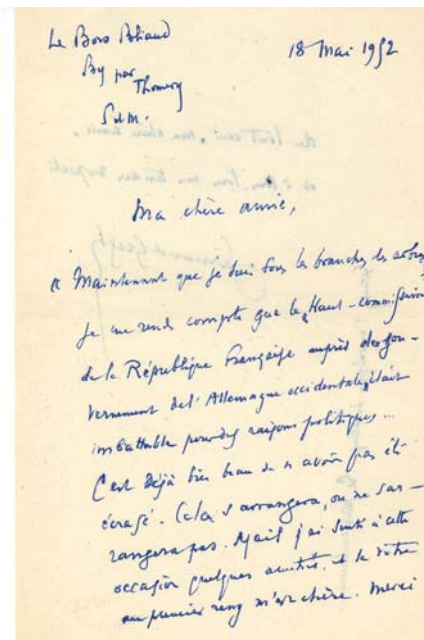 Le Bois Briand
By par
Thomery
S et M.
18 Mai 1952
Ma chère amie,
Maintenant que je suis sous les branches des arbres
je me rends compte que le Haut-commissaire
de la République Française auprès du gou-
vernement de l'Allemagne occidentale, était
imbattable pour des raisons politiques...
C'est déjà bien beau de n'avoir pas été
écrasé. Cela s'arrangera, ou ne s'ar-
rangera pas. Mais j'ai senti à cette
occasion quelques amitiés, et la vôtre
au premier rang m'est chère. Merci